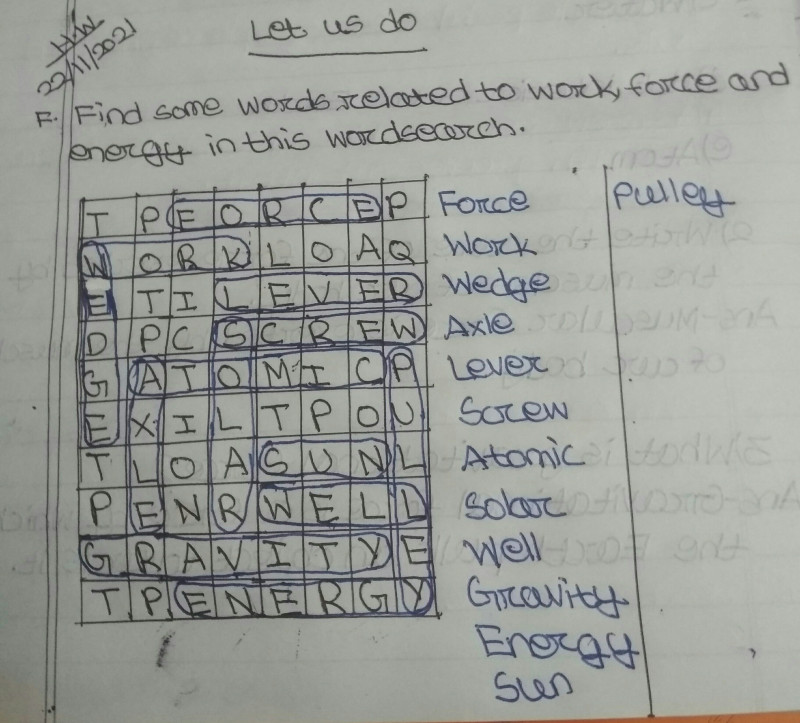 H.W
22/11/2021
Let us do
F. Find some words related to work, force and
energy in this wordsearch.
T P E O R C E P
W O R K L O A Q
E T I L E V E R
D P C S C R E W
G A T O M I C P
E X I L T P O U
T L O A S U N L
P E N R W E L L
G R A V I T Y E
T P E N E R G Y
Force
Work
Wedge
Axle
Lever
Screw
Atomic
Solar
Well
Gravity
Energy
Sun
Pulley